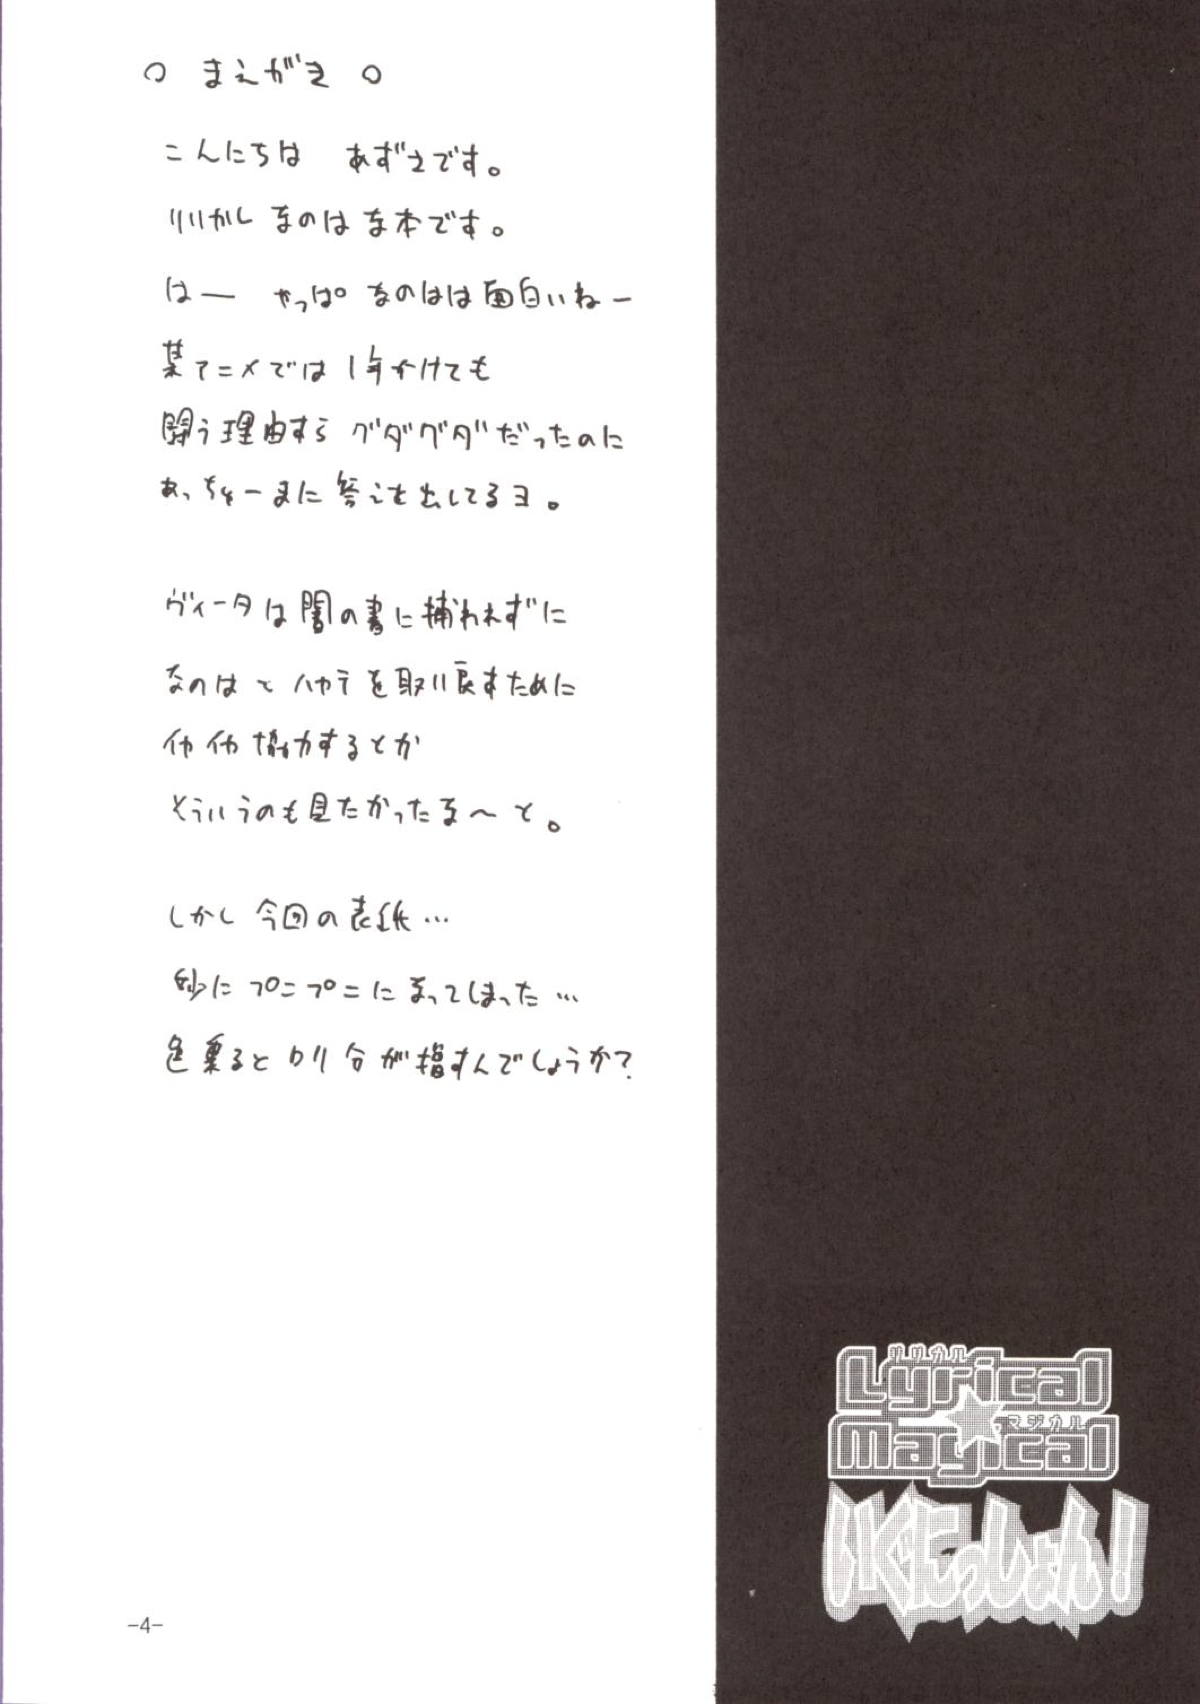 ○ まえがき ○
こんにちは あずまです。
リリカル なのはな本です。
はー やっぱ なのはは面白いねー
某アニメでは 1年かけても
闘う理由すら グダグダだったのに
あっちゅーまに 答えを出してるヨ。
ヴィータは闇の書に捕われずに
なのはと ハヤテを取り戻すために
イヤイヤ協力するとか
そういうのも見たかったな〜と。
しかし 今回の表紙…
妙に プニプニに なってしまった…
色葉るとロリ分が増すんでしょうか?
リリカル
Lyrical
マジカル
Magical
いぐにっしょん!
-4-